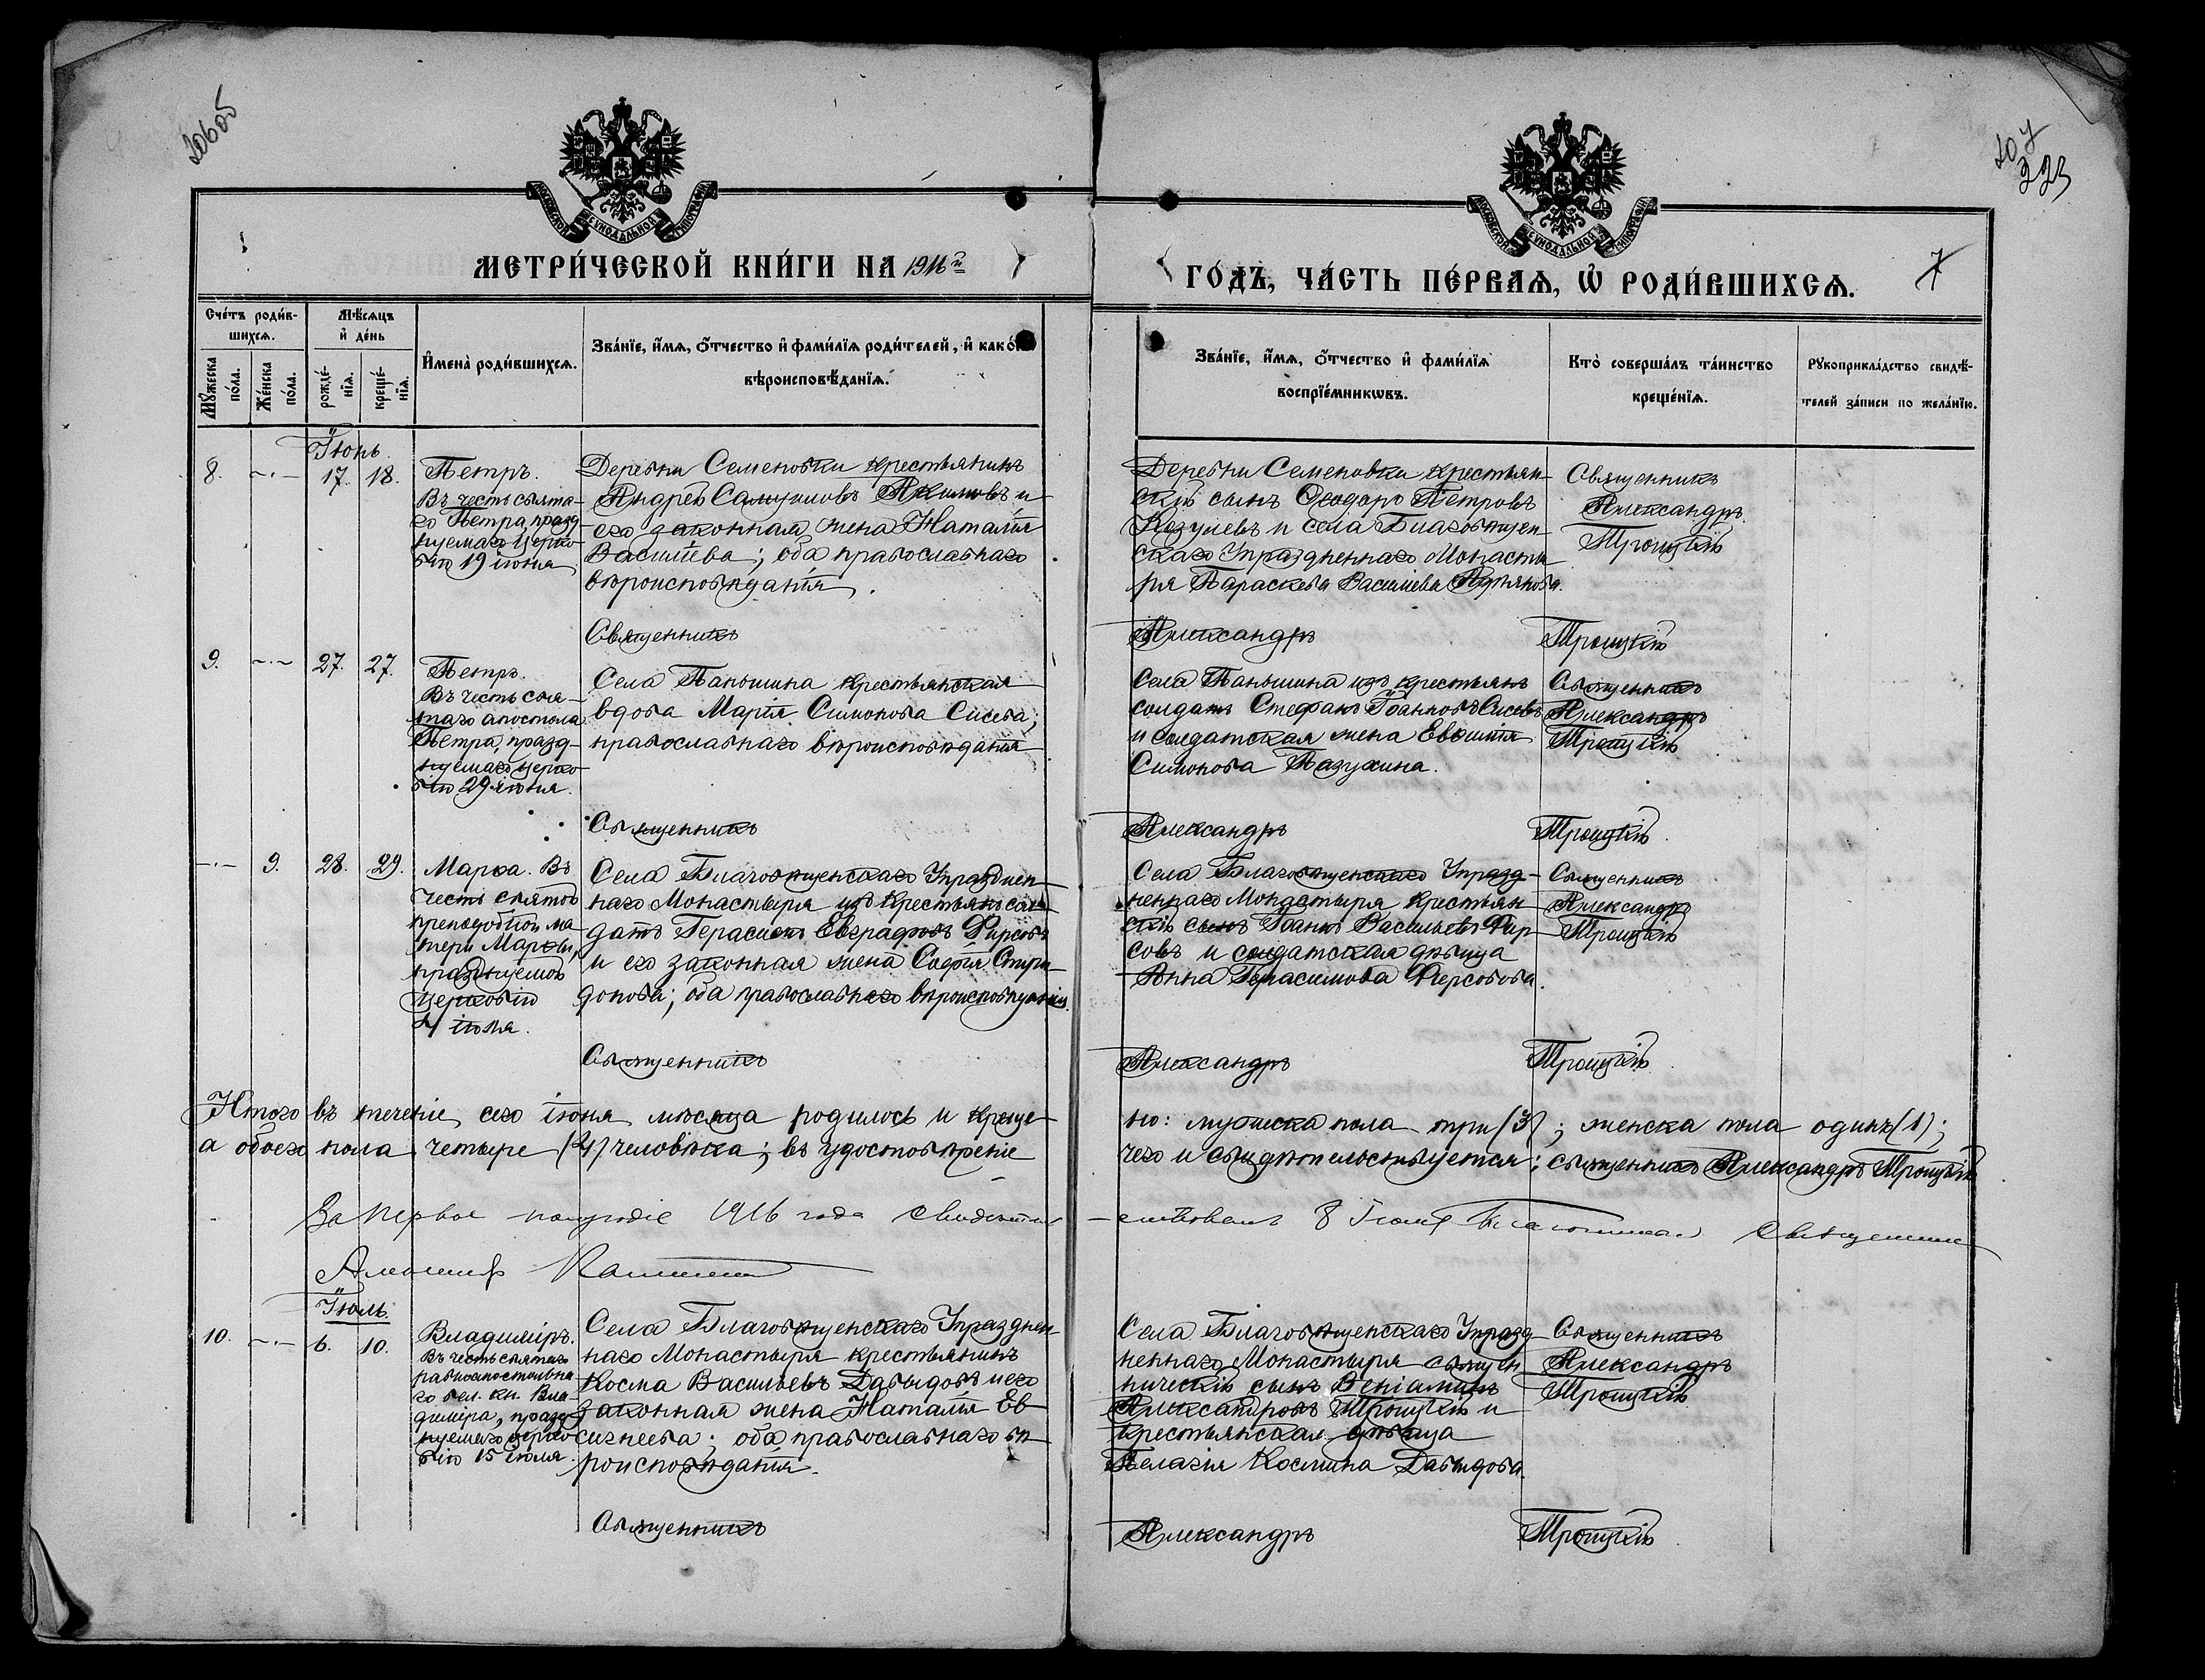 206об
107
223
МОСКОВСКОЙ СѴНОДАЛЬНОЙ ТИПОГРАФІИ
МОСКОВСКОЙ СѴНОДАЛЬНОЙ ТИПОГРАФІИ
МЕТРИ́ЧЕСКОЙ КНИ́ГИ НА 1916й
ГО́ДЪ, ЧА́СТЬ ПЕ́РВАѦ, Ѡ҆ РОДИ́ВШИХСѦ.
7
Сче́тъ роди́в-
шихсѧ.
Мѣ́сѧцъ
и҆ де́нь
Мꙋ́жеска
по́ла.
Же́нска
по́ла.
рожде́-
нїѧ.
креще́-
нїѧ.
И҆мена̀ роди́вшихсѧ.
Зва́нїе, и҆́мѧ, ѻ҆́тчество и҆ фами́лїѧ роди́телей, и҆ како́гѡ
вѣроисповѣ́данїѧ.
Зва́нїе, и҆́мѧ, ѻ҆́тчество и҆ фами́лїѧ
воспрїе́мникѡвъ.
Кто̀ соверша́лъ та́инство
креще́нїѧ.
Рꙋкоприкла́дство свидѣ́-
телей за́писи по жела́нїю.
Іюнь.
8.
17. 18.
Петръ.
Въ честь свята-
го Петра, празд-
нуемаго церко-
вію 19 іюня
Деревни Семеновки крестьянинъ
Андрей Самуиловъ Акимовъ и
его законная жена Наталія
Васильева; оба православнаго
вѣроисповѣданія.
Деревни Семеновки крестьян-
скій сынъ Ѳеодоръ Петровъ
Козулевъ и села Благовѣщен-
скаго Упраздненнаго Монасты-
ря Параскева Васильева
Священникъ
Александръ
Троицкій
Священникъ
Александръ
Троицкій
9.
27. 27.
Петръ.
Въ честь свя-
таго апостола
Петра, празд-
нуемаго церко-
вію 29 іюня.
Села Паньшина крестьянская
вдова Марія Симонова Сисева;
православнаго вѣроисповѣданія
Села Паньшина изъ крестьянъ
солдатъ Стефанъ Іоанновъ Сисевъ
и солдатская жена Евѳимія
Симонова Пазухина.
Священникъ
Александръ
Троицкій
Священникъ
Александръ
Троицкій
9.
28. 29.
Марѳа. Въ
честь святой
преподобной ма-
тери Марѳы,
празднуемой
церковію
4 іюля.
Села Благовѣщенскаго Упразднен-
наго Монастыря изъ крестьянъ сол-
датъ Герасимъ Евграфовъ Фирсовъ
и его законная жена Софія Спири-
донова; оба православнаго вѣроисповѣданія.
Села Благовѣщенскаго Упразд-
неннаго Монастыря крестьян-
скій сынъ Іоаннъ Васильевъ Фир-
совъ и солдатская дѣвица
Анна Герасимова Фирсова.
Священникъ
Александръ
Троицкій
Священникъ
Александръ
Троицкій
Итого въ теченіе сего іюня мѣсяца родилось и креще-
но: мужеска пола три (3); женска пола одинъ (1);
а обоего пола четыре (4) человѣка; въ удостовѣреніе
чего и свидѣтельствуется: священникъ Александръ Троицкій
За первое полугодіе 1916 года свидѣтель-
ствовалъ 8 Іюля Благочинный Священникъ
Іюль.
10.
6. 10.
Владиміръ.
Въ честь святаго
равноапостольна-
го вел. кн. Вла-
диміра, празд-
нуемаго церко-
вію 15 іюля.
Села Благовѣщенскаго Упразднен-
наго Монастыря крестьянинъ
Косма Васильевъ Давыдовъ и его
законная жена Наталія Ев-
сигнеева; оба православнаго вѣ-
роисповѣданія.
Села Благовѣщенскаго Упразд-
неннаго Монастыря священ-
ническій сынъ Веніаминъ
Александровъ Троицкій и
крестьянская дѣвица
Пелагія Космина Давыдова.
Священникъ
Александръ
Троицкій
Священникъ
Александръ
Троицкій